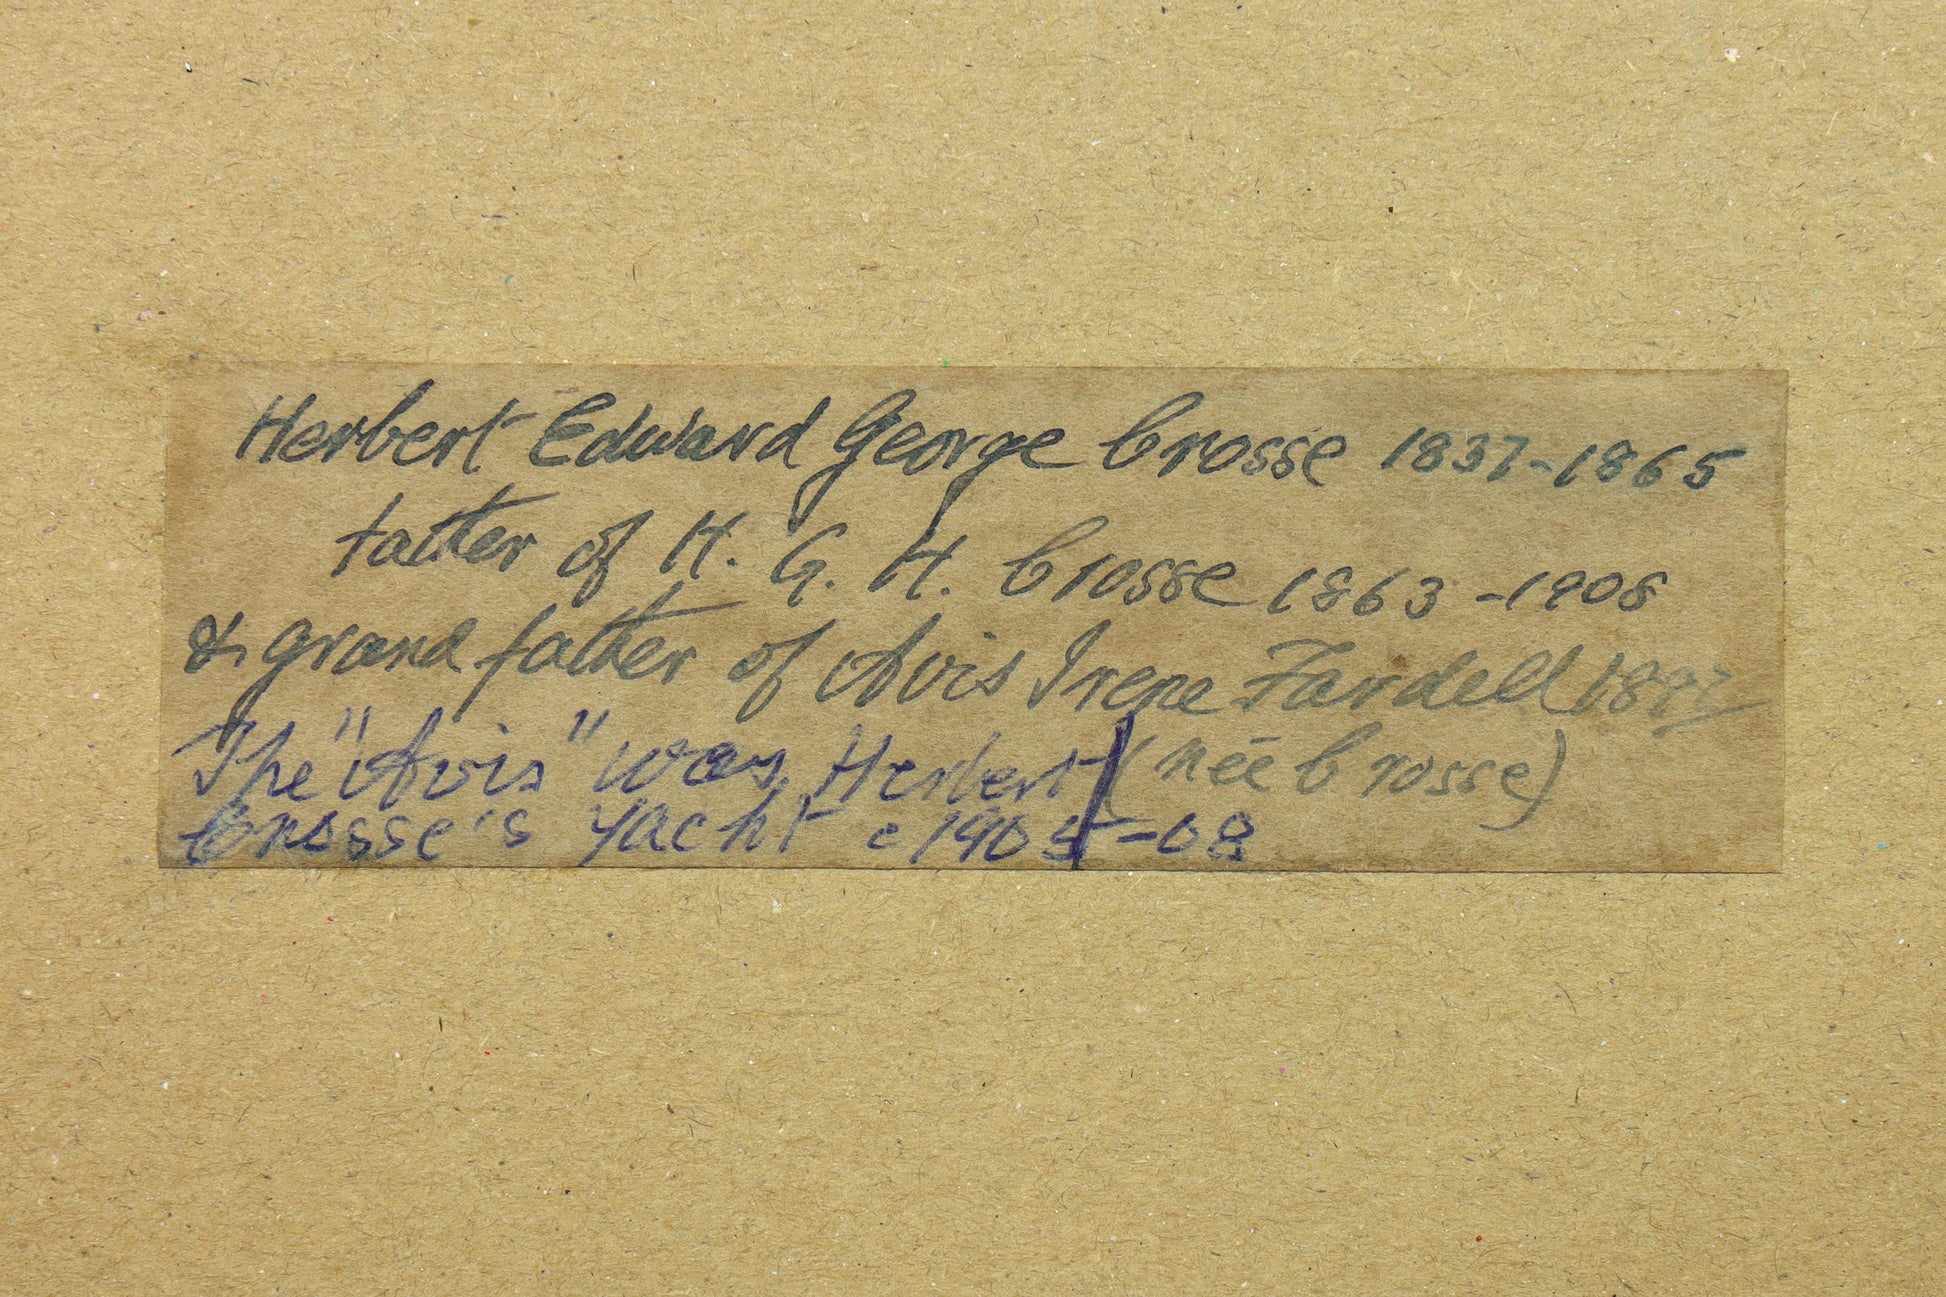 Herbert Edward George Crosse 1837-1865
father of H. G. H. Crosse 1863-1908
& grandfather of Avis Irene Fardell
(née Crosse)
The "Avis" was Herbert
Crosse's Yacht c 1905-08